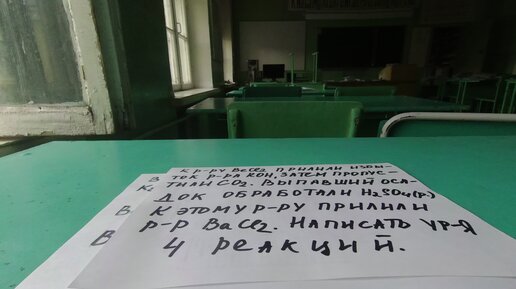 К Р-РУ BeCl₂ ПРИЛИЛИ ИЗБЫ-
ТОК Р-РА KOH, ЗАТЕМ ПРОПУС-
ТИЛИ CO₂. ВЫПАВШИЙ ОСА-
ДОК ОБРАБОТАЛИ H₂SO₄(р.)
К ЭТОМУ Р-РУ ПРИЛИЛИ
Р-Р BaCl₂. НАПИСАТЬ УР-Я
4 РЕАКЦИЙ.